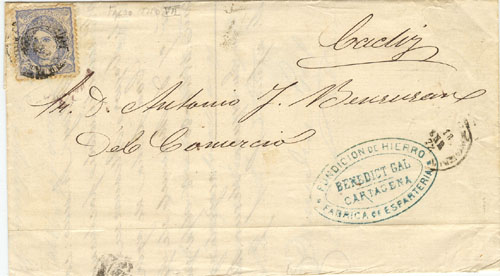 Cadiz
Sr. D. Antonio J. Bensusan
Del Comercio
FUNDICION DE HIERRO
BENEDICT GAL
CARTAGENA
FABRICA DE ESPARTERIA